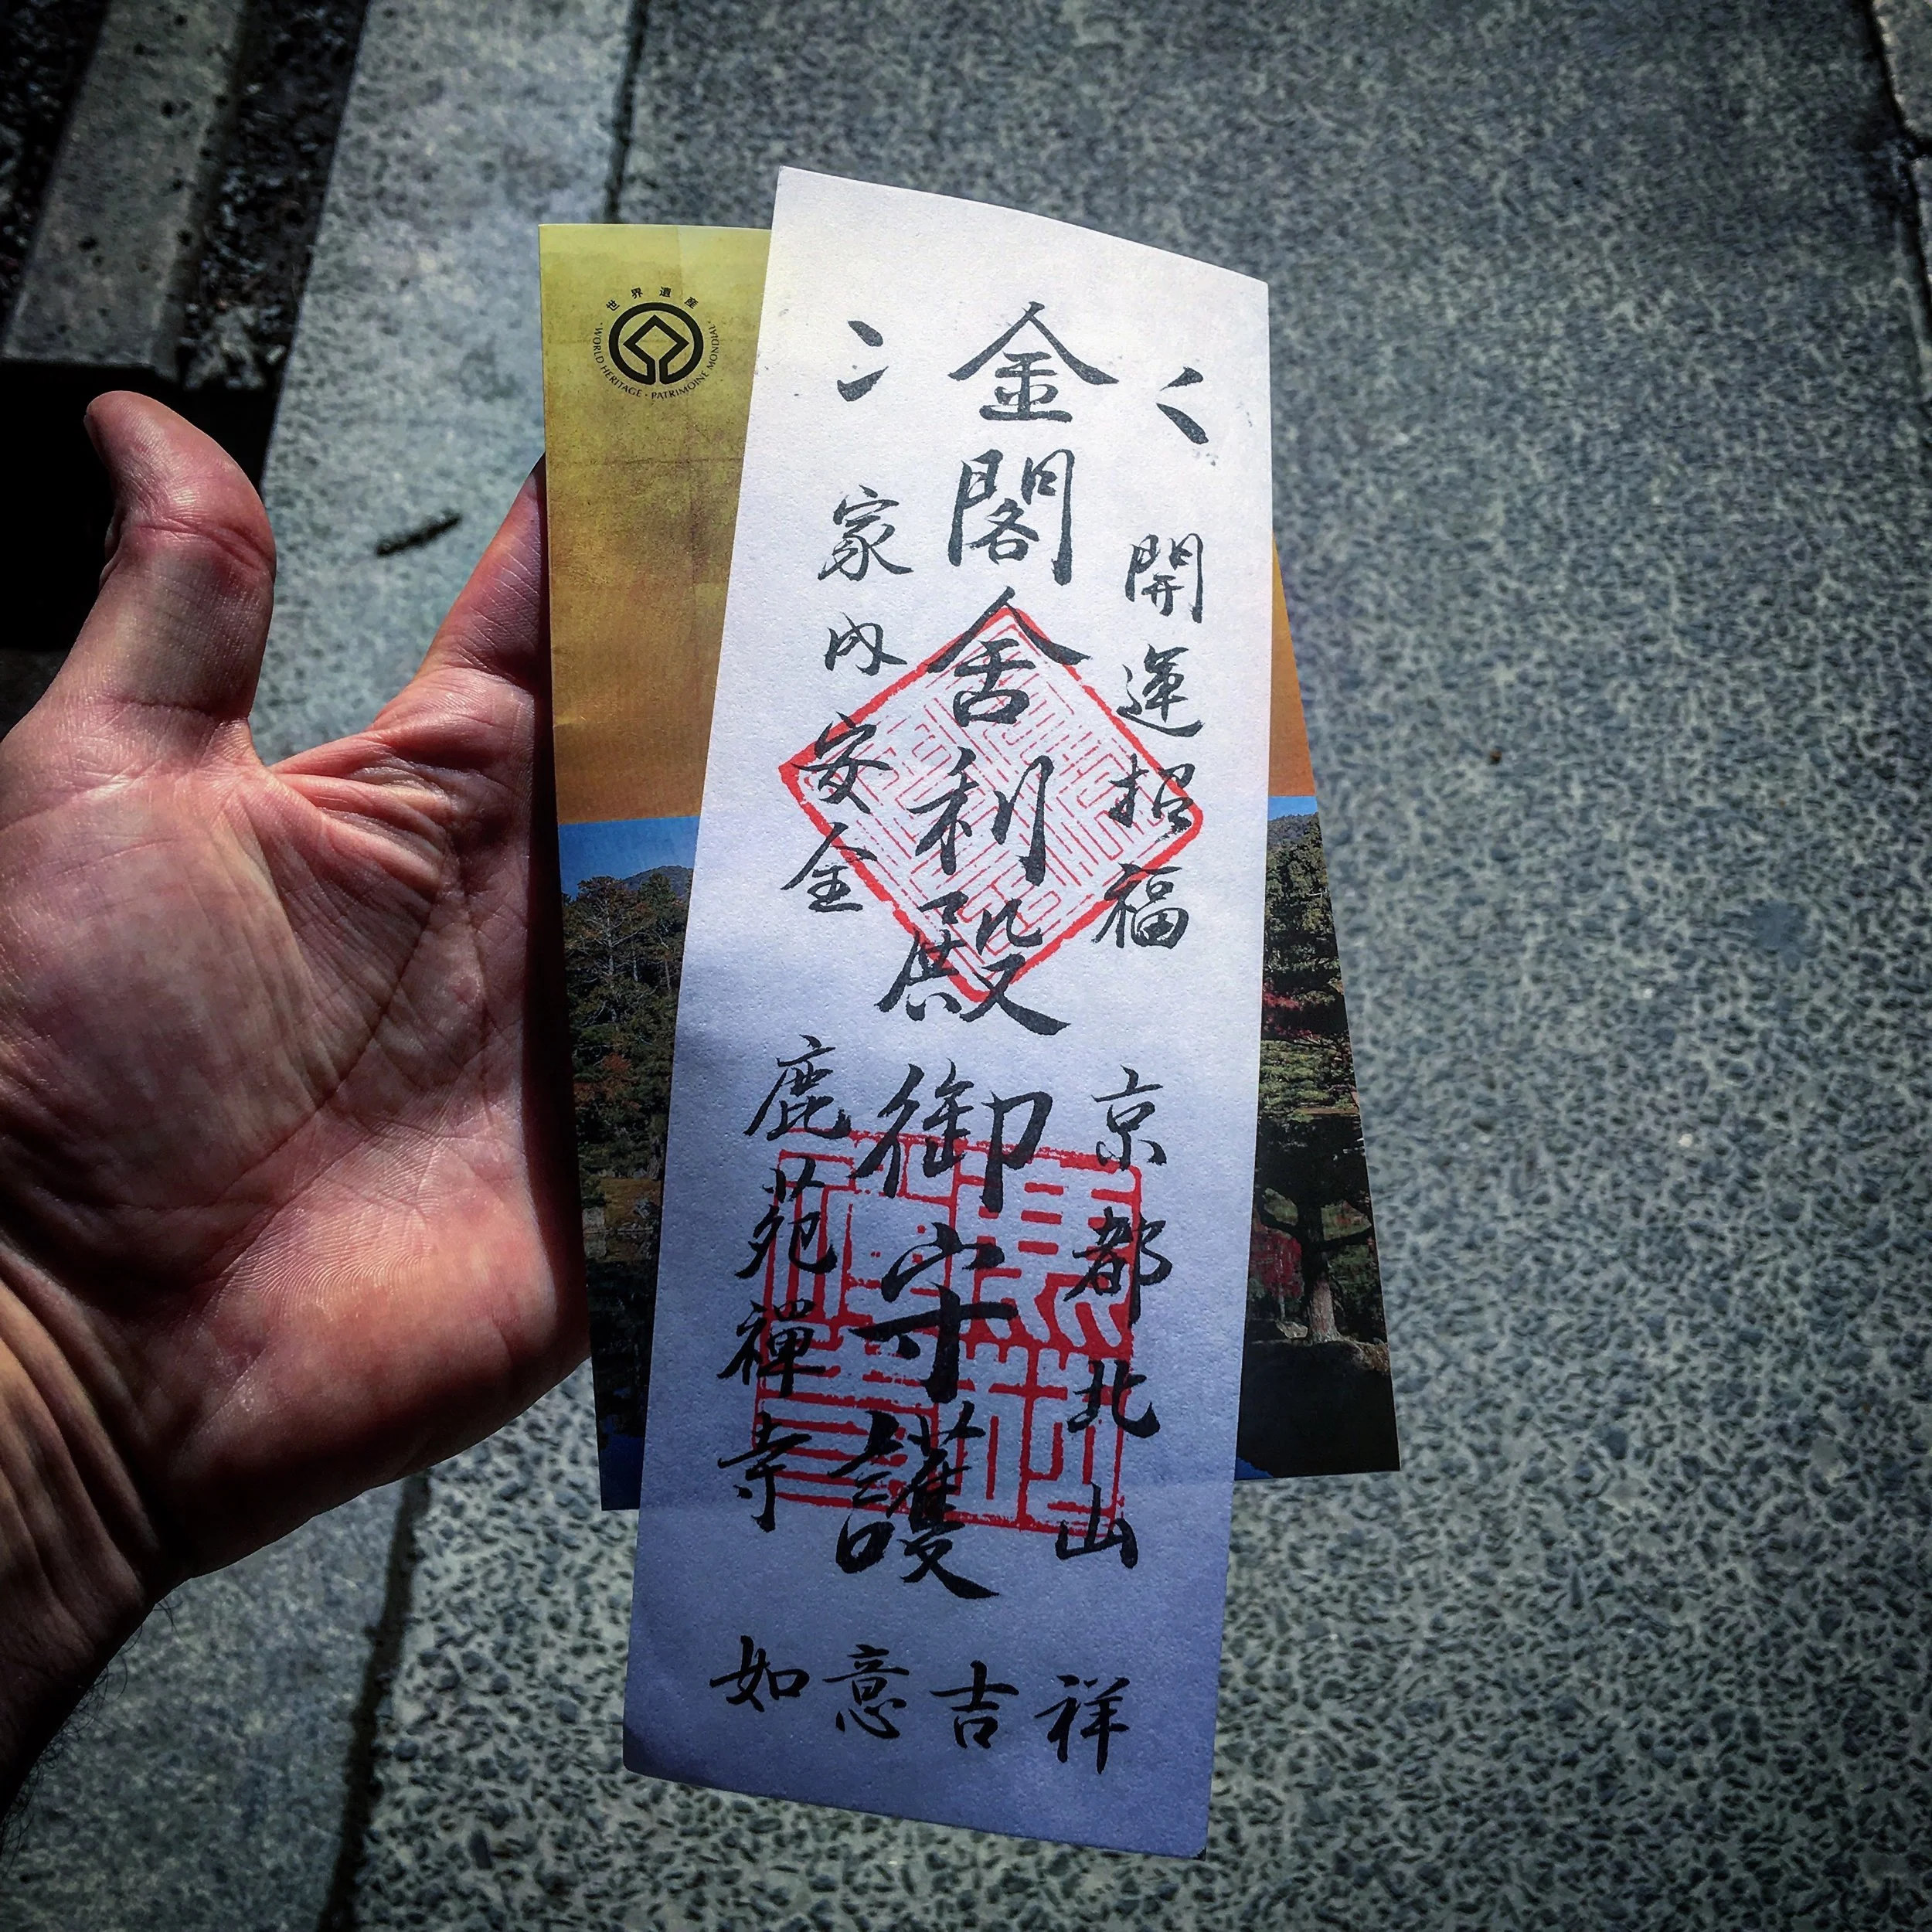 世界遺産
WORLD HERITAGE • PATRIMOINE MONDIAL
開運招福
京都北山
金閣舎利殿御守護
家内安全
鹿苑禅寺
如意吉祥